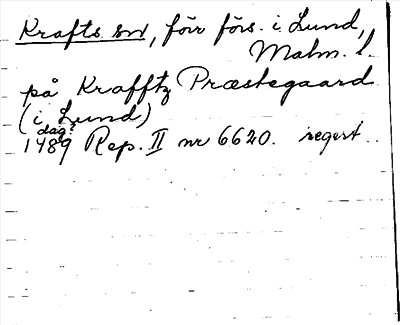 Krafts sn, förr förs. i Lund,
Malm. l.
på Krafftz Præstegaard
(i Lund)
dag?
1489 Rep. II nr 6620. regest.